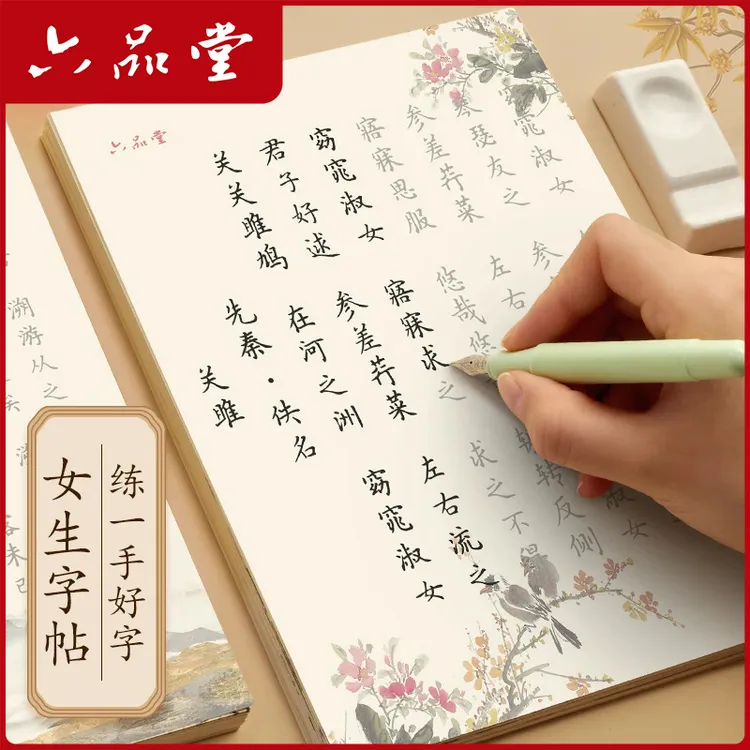 六品堂
六品堂
关雎
先秦·佚名
关关雎鸠
在河之洲
窈窕淑女
君子好逑
参差荇菜
左右流之
窈窕淑女
寤寐求之
求之不
寤寐思服
悠哉悠
转反侧
参差荇菜
左右
淑女
琴瑟友之
参
窈窕淑女
溯游从之
练一手好字
女生字帖